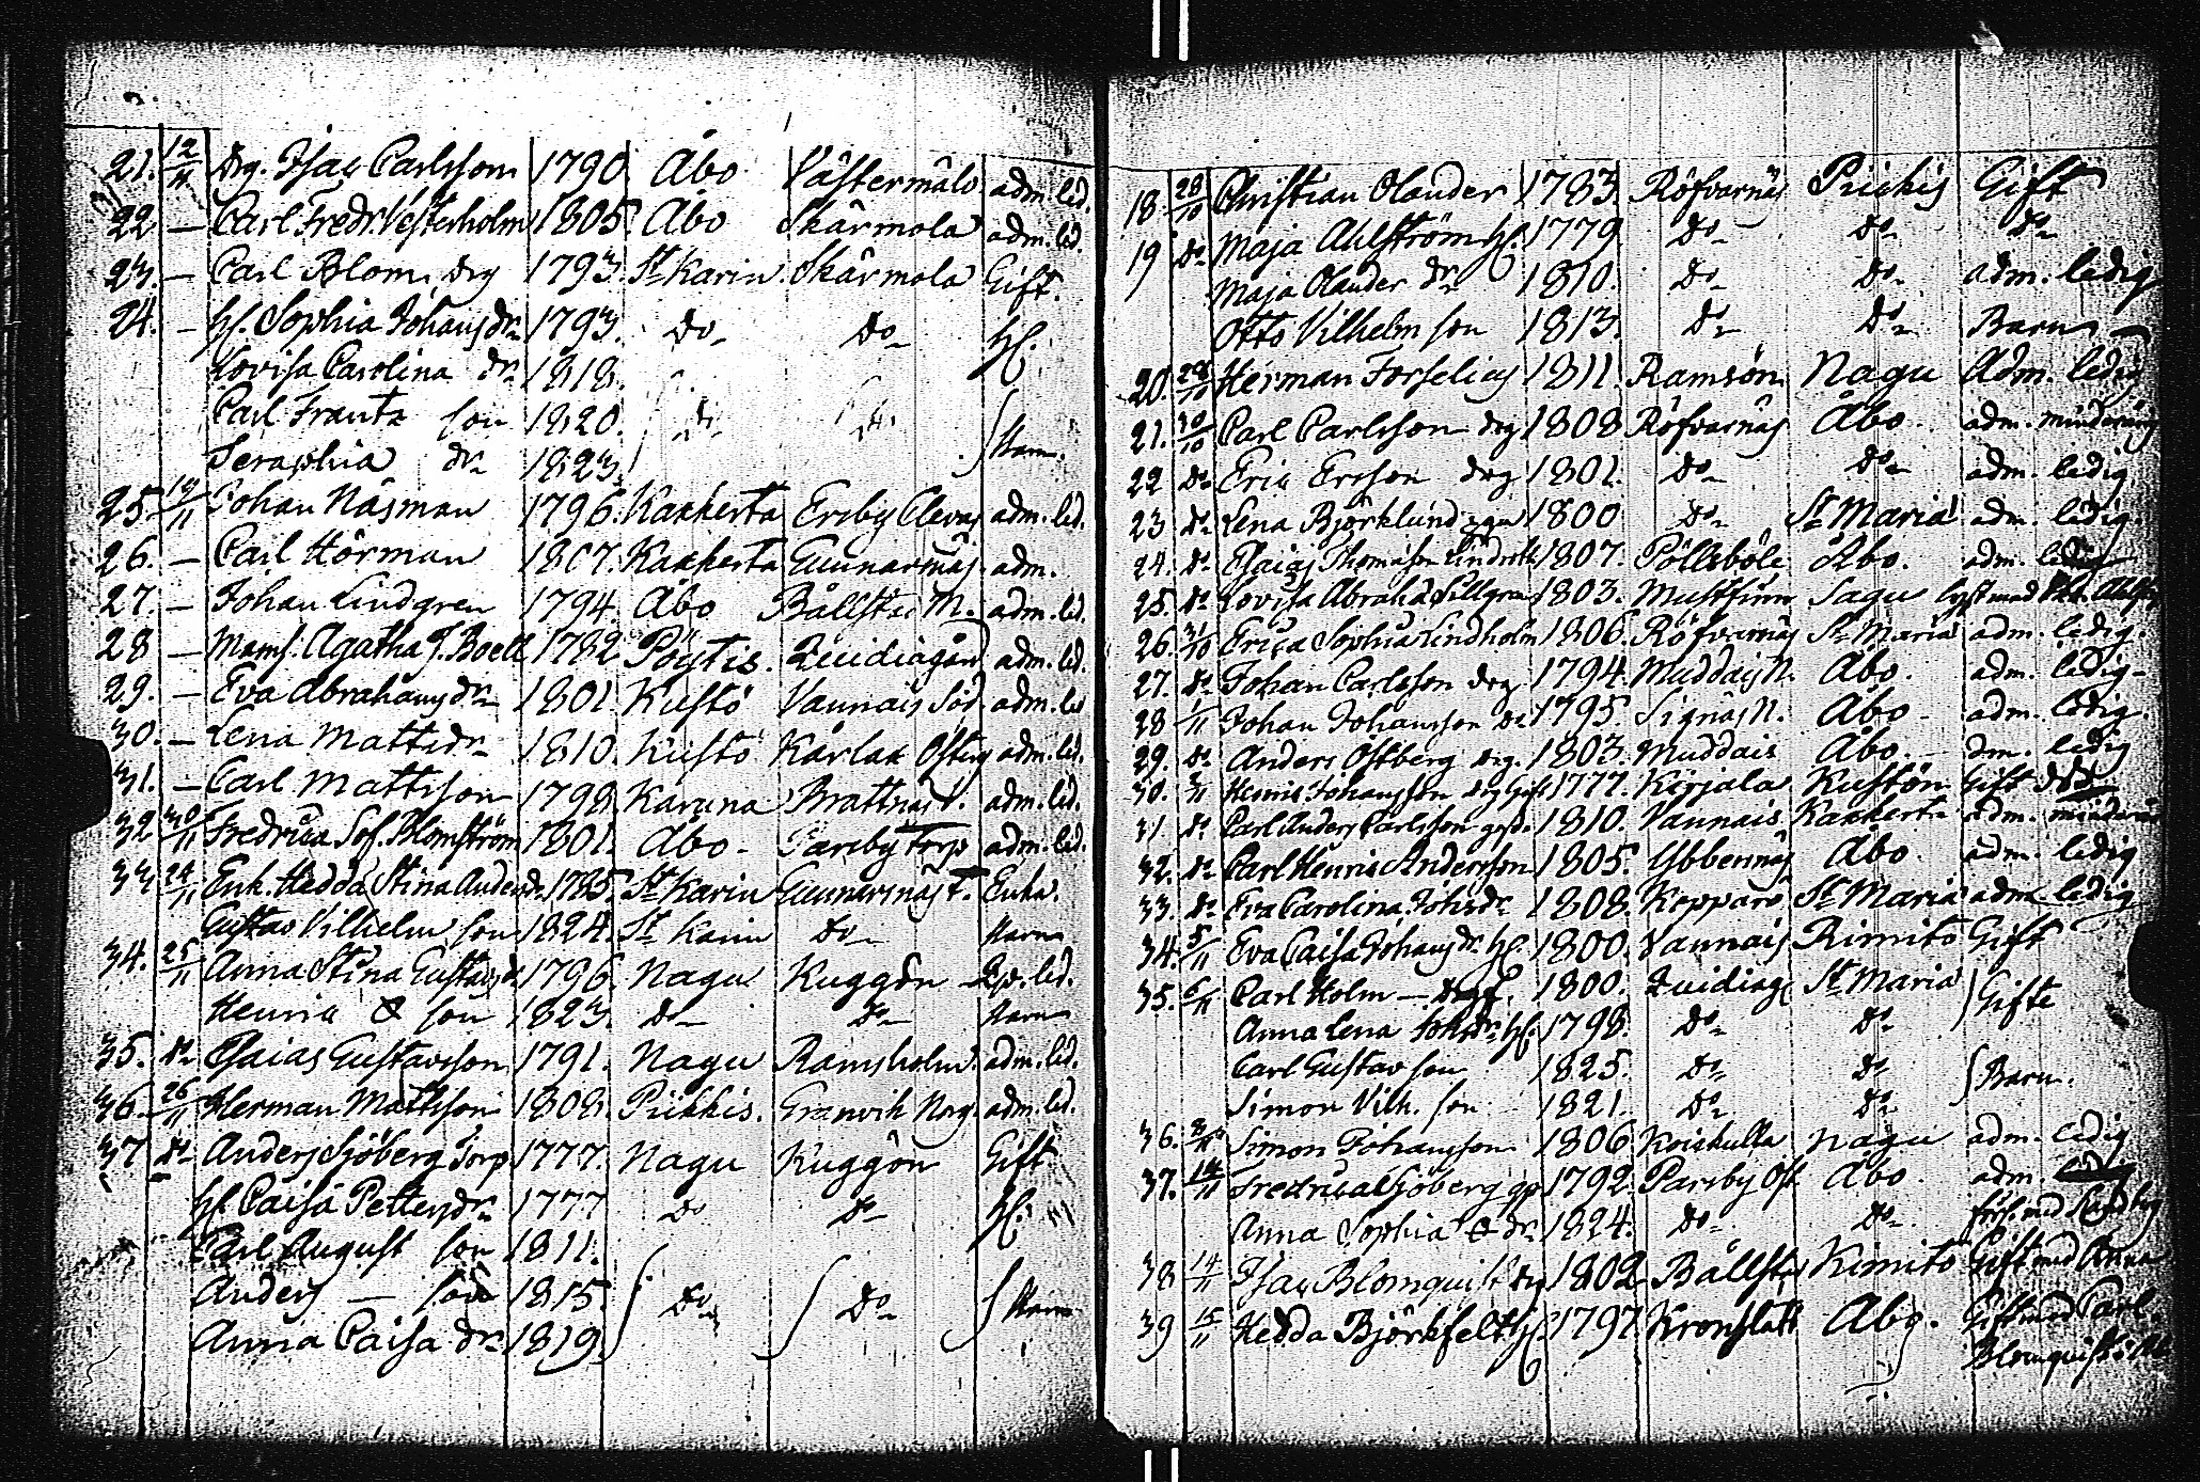 21. 12/11 Drg. Isac Carlsson 1790. Åbo Västermälö adm. led.
22. — Carl Fredr. Vesterholm 1805. Åbo Skärmola adm. led.
23. — Carl Blom, drg 1793. St Karin. Skärmola Gift.
24. — h. Sophia Johansdr 1793. Do Do h.
Lovisa Carolina dr 1818.
Carl Frantz son 1820. Do Do Barn.
Seraphia dr 1823.
25. 14/11 Johan Näsman 1796. Kakkerta Ersby Clevas adm. led.
26. — Carl Hörman 1807. Kakkerta Gunnarsnäs. adm.
27. — Johan Lindgren 1794. Åbo Bållsta M. adm. led.
28 — Mams. Agatha J. Boell 1782 Pöytis. Qvidiagård adm. led.
29. — Eva Abrahamsdr 1801. Kustö Vannais Söd. adm. led
30. — Lena Mattsdr 1810. Kustö Kärlax adm. led.
31. — Carl Mattsson 1798. Karuna Brattnäs adm. led.
32 30/11 Fredrica Sof. Blomström 1801. Åbo Parsby Torp adm. led.
33 24/11 Enk. Hedda Stina Andersdr. 1785. St Karin Gunnarsnäs T. Enka.
Gustav Vilhelm son 1824. St Karin Do Barn
34. 25/11 Anna Stina Gustavsdr 1796. Nagu Kuggön led.
Henric son 1823. Do Do Barn
35. Do Esaias Gustavsson 1791. Nagu Ramsholm. adm. led.
36. 26/11 Herman Mattsson 1808. Pikkis. Granvik Norg. adm. led.
37 Do Anders Sjöberg Torp. 1777. Nagu Kuggön Gift
h. Caisa Pettersdr 1777 Do Do h.
Carl August son 1811.
Anders — son 1815. Do Do Barn
Anna Caisa dr 1819.
18. 28/10 Christian Olander 1783. Röfvarnäs Pickis Gift
19 Do Maja Ahlström h. 1779 Do Do Do
Maja Olander dr 1810. Do Do adm. ledig
Otto Vilhelm son 1813. Do Do Barn
20. 28/10 Herman Forselius 1811. Ramsön Nagu Adm. ledig
21. 30/10 Carl Carlsson drg 1808 Röfvarnäs Åbo. adm. minderårig
22 Do Eric Ersson drg 1801. Do Do adm. ledig
23 Do Lena Björklund 1800 Do St Maria adm. ledig.
24. Do Esaias Thomasson Lindroth 1807. Pölleböle Åbo. adm. ledig
25. Do Lovisa Abrahd. Sillgren 1803. Mustfinn Sagu lyst med
26. 31/10 Erica Sophia Lindholm 1806. Röfvarnäs St Maria adm. ledig.
27. Do Johan Carlsson drg 1794. Muddais N. Åbo. adm. ledig
28 1/11 Johan Johansson Do 1795. Signäs N. Åbo adm. ledig.
29. Do Anders Östberg drg. 1803. Muddais Åbo. adm. ledig
30. 3/11 Henric Johansson drg Gift 1777. Kirjala Kustön Gift
31. Do Carl Anders Carlsson goss. 1810. Vannais Kakkerta adm. minderårig
32. Do Carl Henric Andersson 1805. Ybbernäs Åbo adm. ledig
33. Do Eva Carolina Johsdr 1808. Kopparö St Maria adm. ledig
34. 5/11 Eva Caisa Johansdr h. 1800. Vannais Rimito Gift
35. 6/11 Carl Holm — 1800. Qvidiag. St Maria Gifte
Anna Lena Johsdr h. 1798. Do Do
Carl Gustav son 1825. Do Do Barn.
Simon Vilh. son 1821. Do Do
36. 8/11 Simon Johansson 1806 Koiskulla Nagu adm. ledig
37. 14/11 Fredrica Sjöberg 1792. Parsby Öst. Åbo adm.
Anna Sophia dr 1824. Do Do
38 14/11 Isac Blomquist drg 1802 Bållsta Kimito Gift med Anna
39 15/11 Hedda Björkfelt h. 1797. Kronslått Åbo. Gift med Carl
Blomquist i